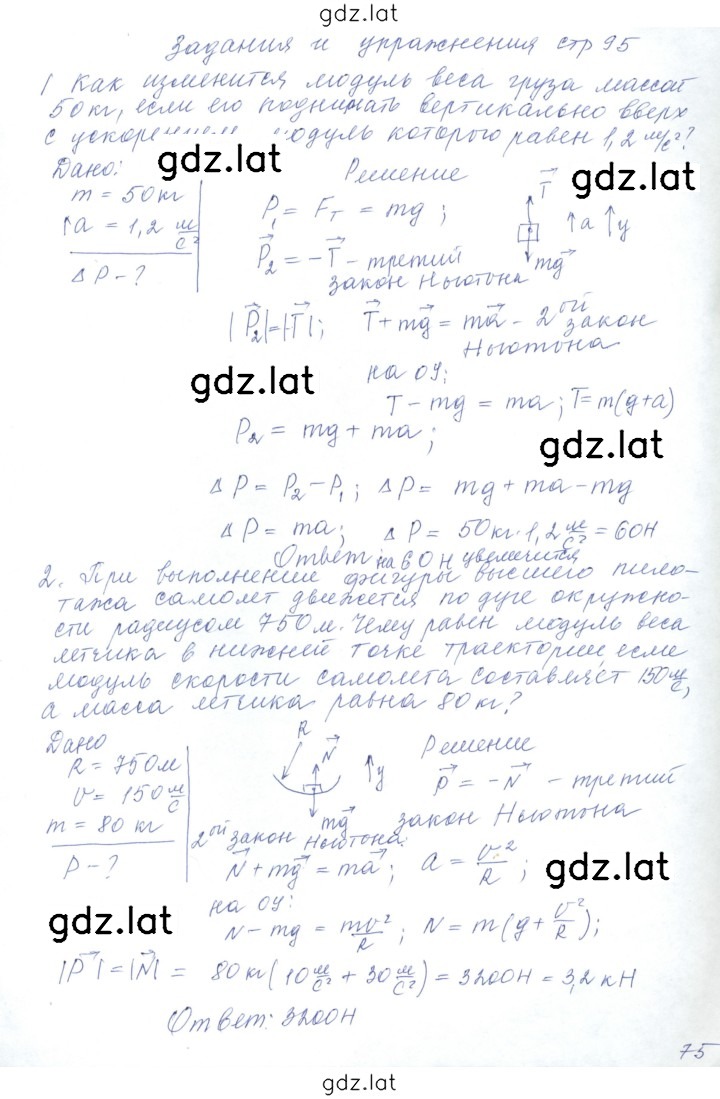 gdz.lat
Задания и упражнения стр 95
1 Как изменится модуль веса груза массой
50 кг, если его поднимать вертикально вверх
с ускорением модуль которого равен 1,2 м/с²?
Дано: gdz.lat Решение gdz.lat
m = 50 кг
↑a = 1,2 м/с²
ΔP - ?
P₁ = Fт = mg ;
P⃗₂ = -T⃗ - третий
закон Ньютона
T⃗
↑a ↑y
mg⃗
|P⃗₂|=|T⃗|; T⃗ + mg⃗ = ma⃗ - 2ой закон
Ньютона
gdz.lat на OY:
T - mg = ma ; T = m(g+a)
P₂ = mg + ma ; gdz.lat
ΔP = P₂ - P₁ ; ΔP = mg + ma - mg
ΔP = ma ; ΔP = 50кг · 1,2 м/с² = 60Н
Ответ на 60Н увеличится
2. При выполнении фигуры высшего пило-
тажа самолет движется по дуге окружно-
сти радиусом 750 м. Чему равен модуль веса
летчика в нижней точке траектории если
модуль скорости самолета составляет 150 м/с,
а масса летчика равна 80 кг?
Дано
R = 750м
υ = 150 м/с
m = 80 кг
P - ?
R N⃗ ↑y
mg⃗
Решение
P⃗ = -N⃗ - третий
закон Ньютона
2ой закон Ньютона:
N⃗ + mg⃗ = ma⃗ ; a = υ²/R ; gdz.lat
gdz.lat на OY:
N - mg = mυ²/R ; N = m(g + υ²/R);
|P⃗| = |N⃗| = 80 кг(10 м/с² + 30 м/с²) = 3200Н = 3,2 кН
Ответ: 3200Н
75
gdz.lat